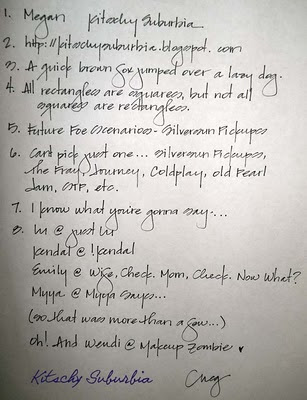 1. Megan Kitschy Suburbia
2. http://kitschysuburbia.blogspot.com
3. A quick brown fox jumped over a lazy dog.
4. All rectangles are squares, but not all
squares are rectangles.
5. Future Foe Scenarios - Silversun Pickups
6. Can't pick just one... Silversun Pickups,
The Fray, Journey, Coldplay, old Pearl
Jam, STP, etc.
7. I know what you're gonna say...
8. Lu @ just Lu
Kendal @ !Kendal
Emily @ Wife, Check. Mom, Check. Now What?
Myya @ Myya Says...
(so that was more than a few...)
Oh! And Wendi @ Makeup Zombie ♥
Kitschy Suburbia